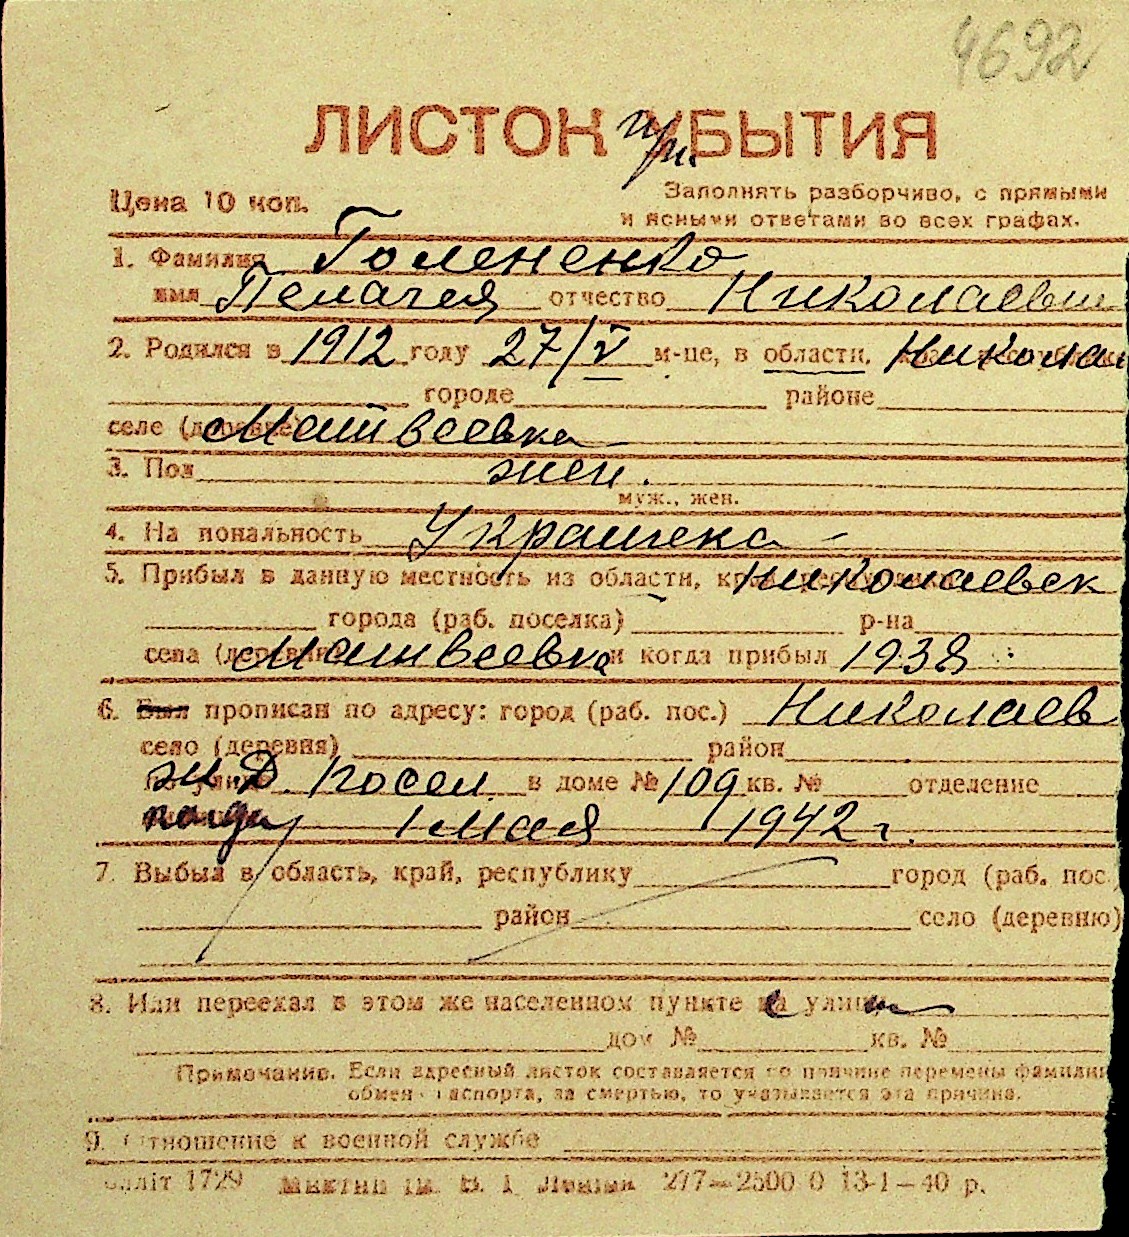 4692
ЛИСТОК при УБЫТИЯ
Цена 10 коп.
Заполнять разборчиво, с прямыми
и ясными ответами во всех графах.
1. Фамилия Голененко
имя Пелагея отчество Николаевн
2. Родился в 1912 году 27/V м-це, в области, Никола
городе районе
селе (деревне) Матвеевка
3. Пол жен.
муж., жен.
4. На иональность Украинка
5. Прибыл в данную местность из области, Николаевск
города (раб. поселка) р-на
села (деревни) Матвеевка и когда прибыл 1938
6. Был прописан по адресу: город (раб. пос.) Николаев
село (деревня) район
ж.д. посел. в доме № 109 кв. № отделение
1 мая 1942 г.
7. Выбыл в область, край, республику город (раб. пос.)
район село (деревню)
8. Или переехал в этом же населенном пункте с улицы
дом № кв. №
Примечание. Если адресный листок составляется по причине перемены фамилии
обмен паспорта, за смертью, то указывается эта причина.
9. Отношение к военной службе
лліт 1729 277—2500 0 13-1—40 р.